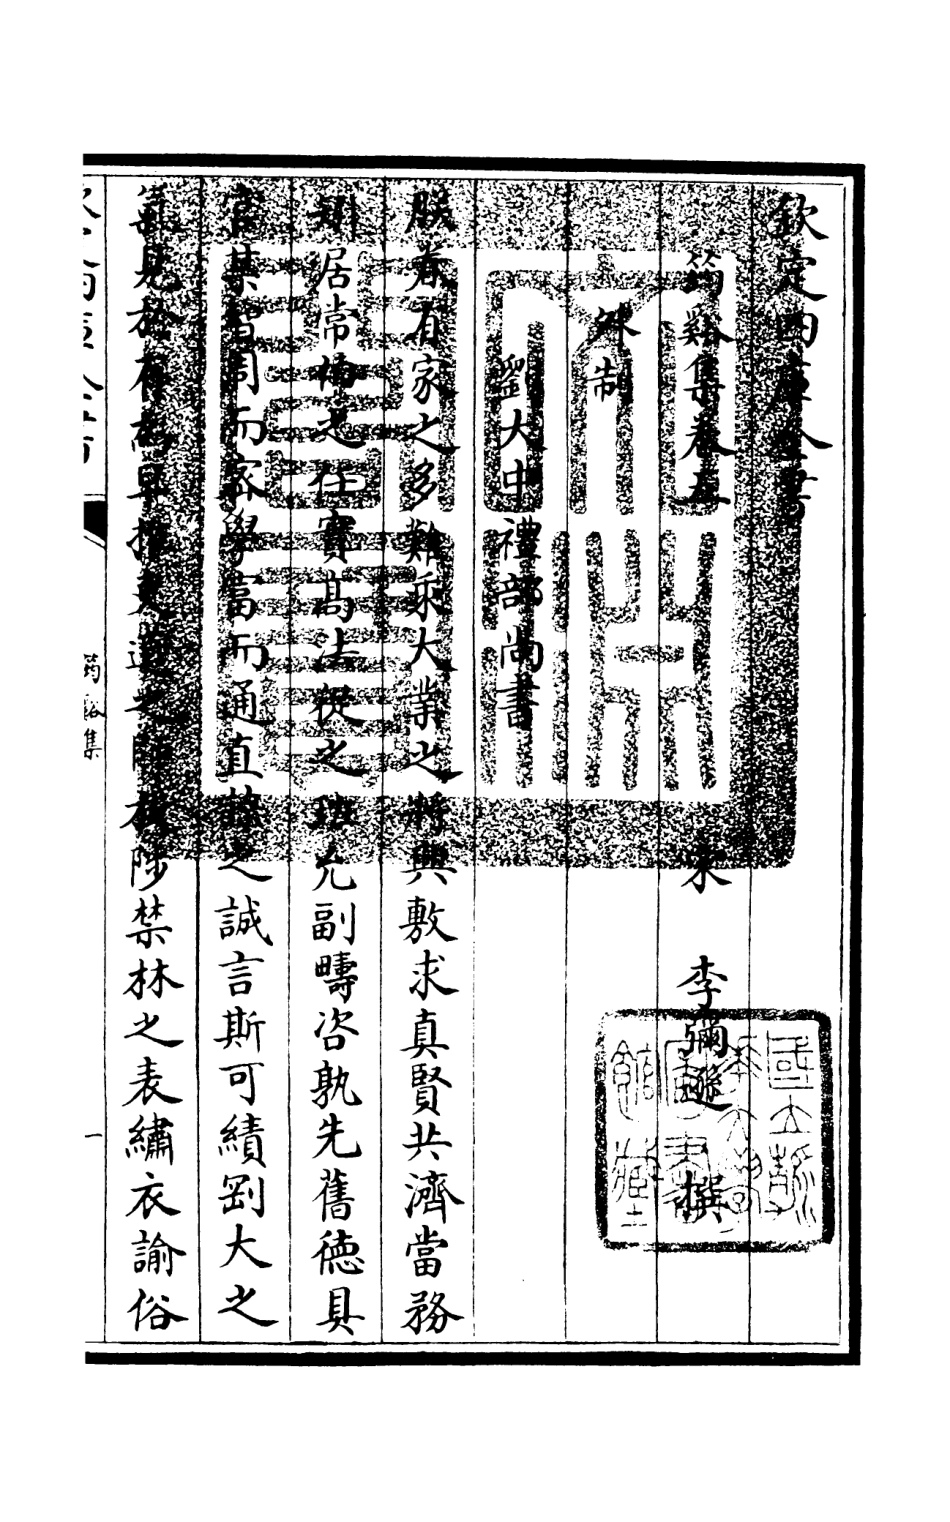 欽定四庫全書
筠谿集卷五
宋 李彌遜 撰
外制
劉大中禮部尚書
朕眷有家之多難乘大業之將興敷求真賢共濟當務
居常之任實高法從之班允副疇咨孰先舊德具
官某周而家學富而通直之誠言斯可績劉大之
見於有早擢陟禁林之表繡衣諭俗
筠谿集
一
國立
館藏